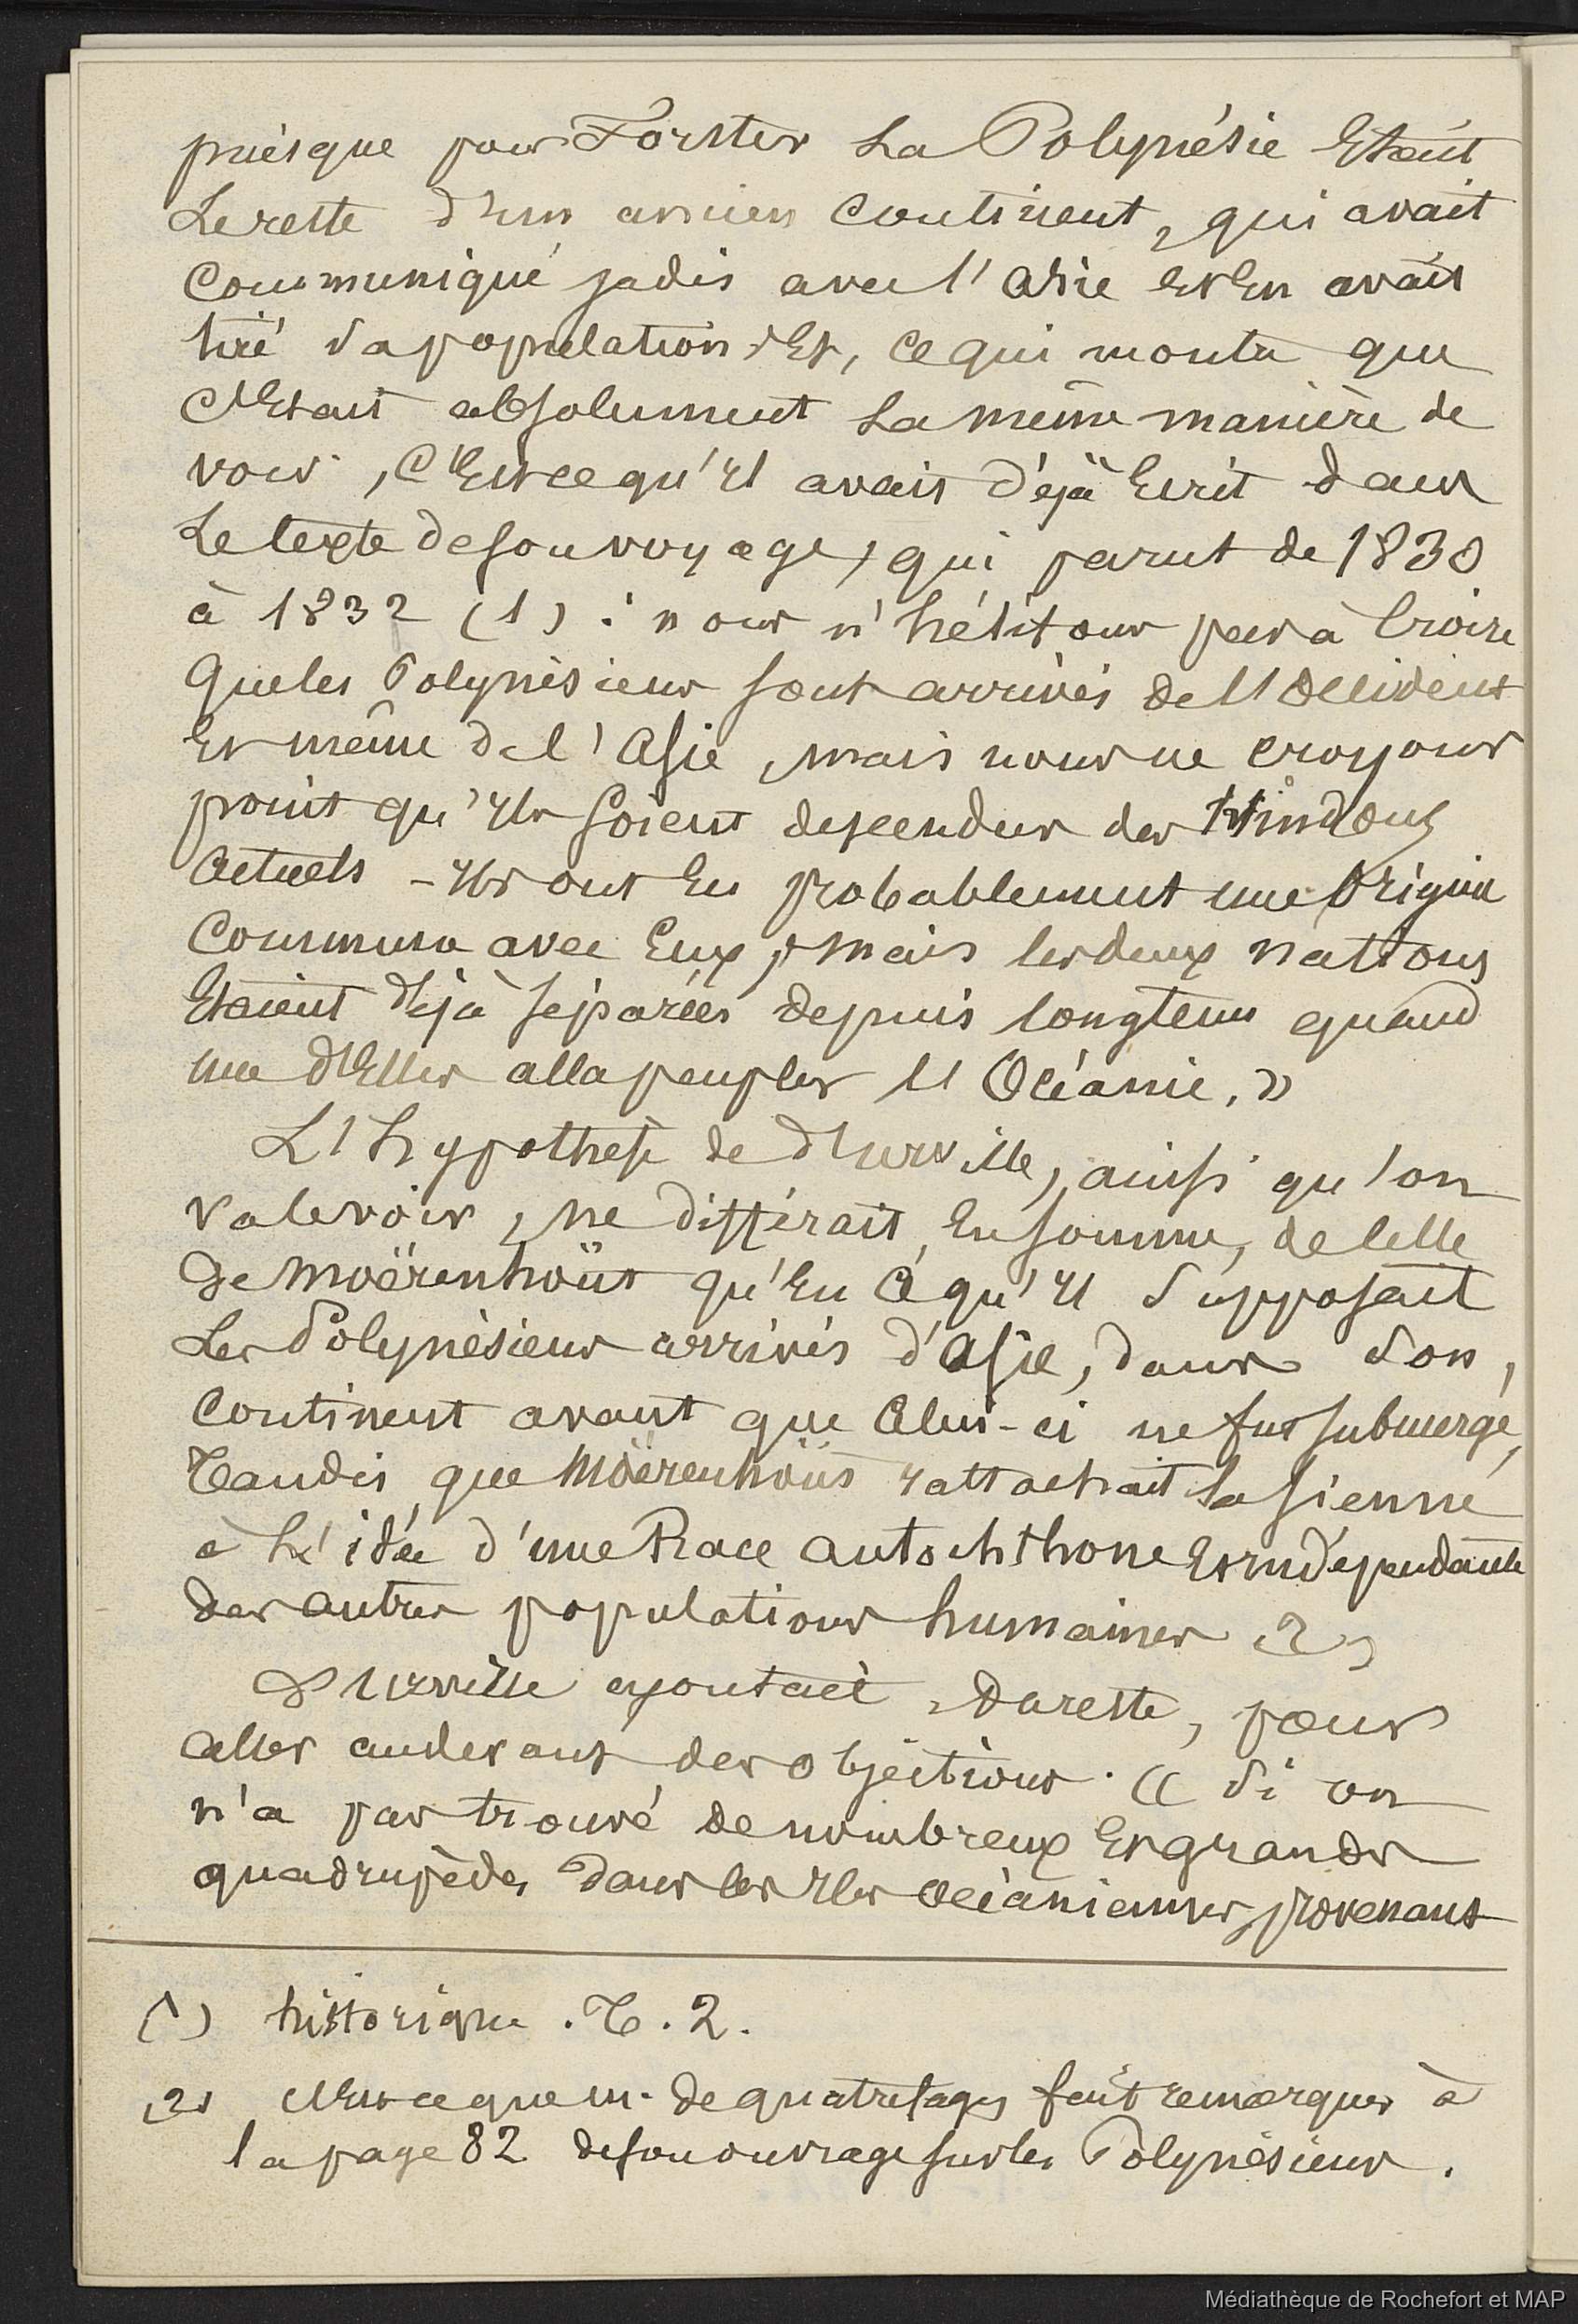 puisque pour Förster La Polynésie Etait
Le reste d'un ancien Continent, qui avait
Communiqué jadis avec l'Asie Et En avait
tiré sa population. Et, ce qui montre que
C'Etait absolument La même manière de
voir, C'Est ce qu'Il avait déjà Ecrit dans
Le texte de son voyage, qui parut de 1830
à 1832 (1) : nous n'hésitons pas à Croire
Que les Polynésiens sont arrivés de l'Occident
Et même de l'Asie, mais nous ne croyons
point qu'Ils soient descendus des Hindous
Actuels - Ils ont Eu probablement une Origine
Commune avec Eux, mais les deux nations
Etaient déjà séparées depuis longtems quand
une d'Elles alla peupler l'Océanie. »
L'hypothèse de d'Urville, ainsi qu'on
va le voir, ne différait, En somme, de Celle
De Moërenhoüt qu'En Ce qu'Il Supposait
Les Polynésiens arrivés d'Asie, dans Son,
Continent avant que Celui-ci ne fut submergé,
Tandis que Moërenhoüt rattachait la sienne
à L'idée d'une Race autochthone Et indépendante
des autres populations humaines (2)
D'Urville ajoutait, Du reste, pour
aller au devant des objections. « Si on
n'a pas trouvé de nombreux Et grands
quadrupèdes Dans les Iles Océaniennes, provenant
(1) historique . T. 2.
(2) C'Est ce que M. de Quatrefages fait remarquer à
la page 82 de son ouvrage sur les Polynésiens.
Médiathèque de Rochefort et MAP